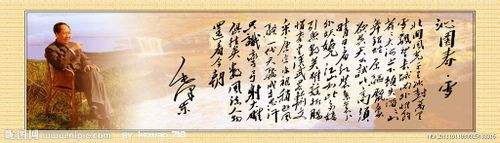 沁园春·雪
北国风光千里冰封万里
雪飘望长城内外惟余莽
莽大河上下顿失滔滔山
舞银蛇原驰蜡象欲与
天公试比高须
晴日看红装素裹分
外妖娆江山如此多娇
引无数英雄竞折腰
惜秦皇汉武略输文
采唐宗宋祖稍逊风
骚一代天骄成吉思汗
只识弯弓射大雕
俱往矣数风流人物
还看今朝
毛泽东
昵图网 www.nipic.com